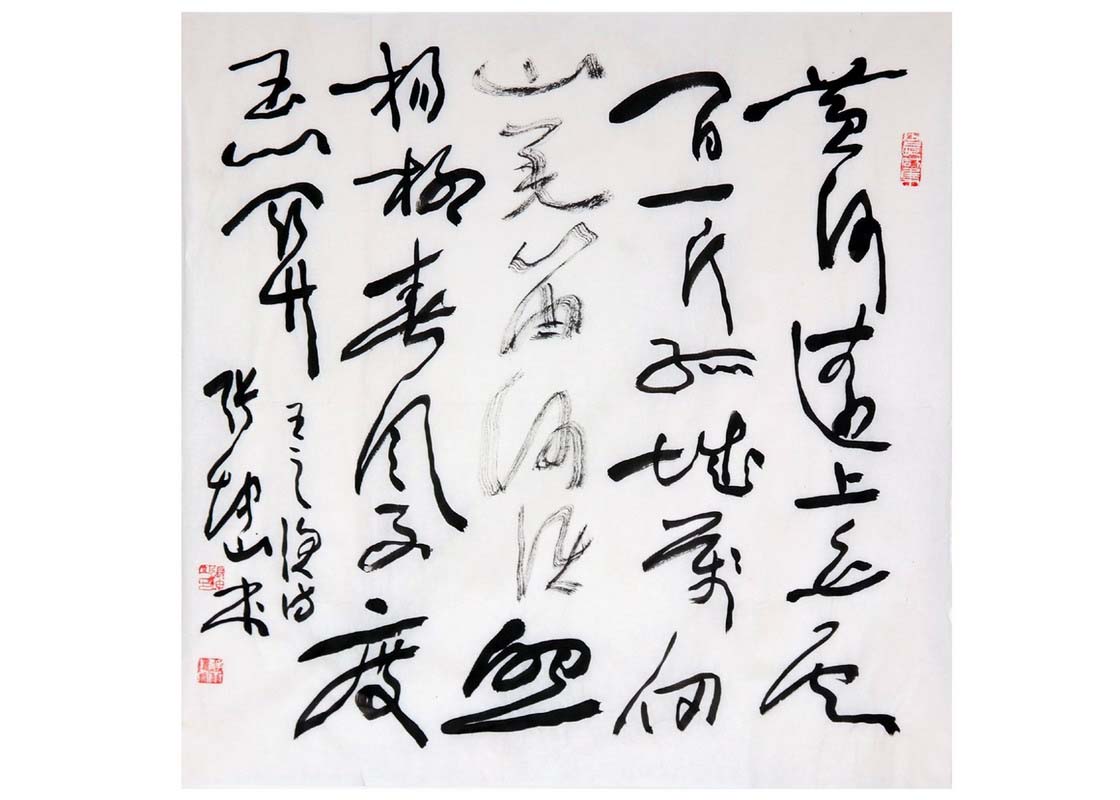 黄河遠上白云
间一片孤城萬仞
山羌笛何须怨
杨柳春风不度
玉门关
王之涣诗
张坤山书